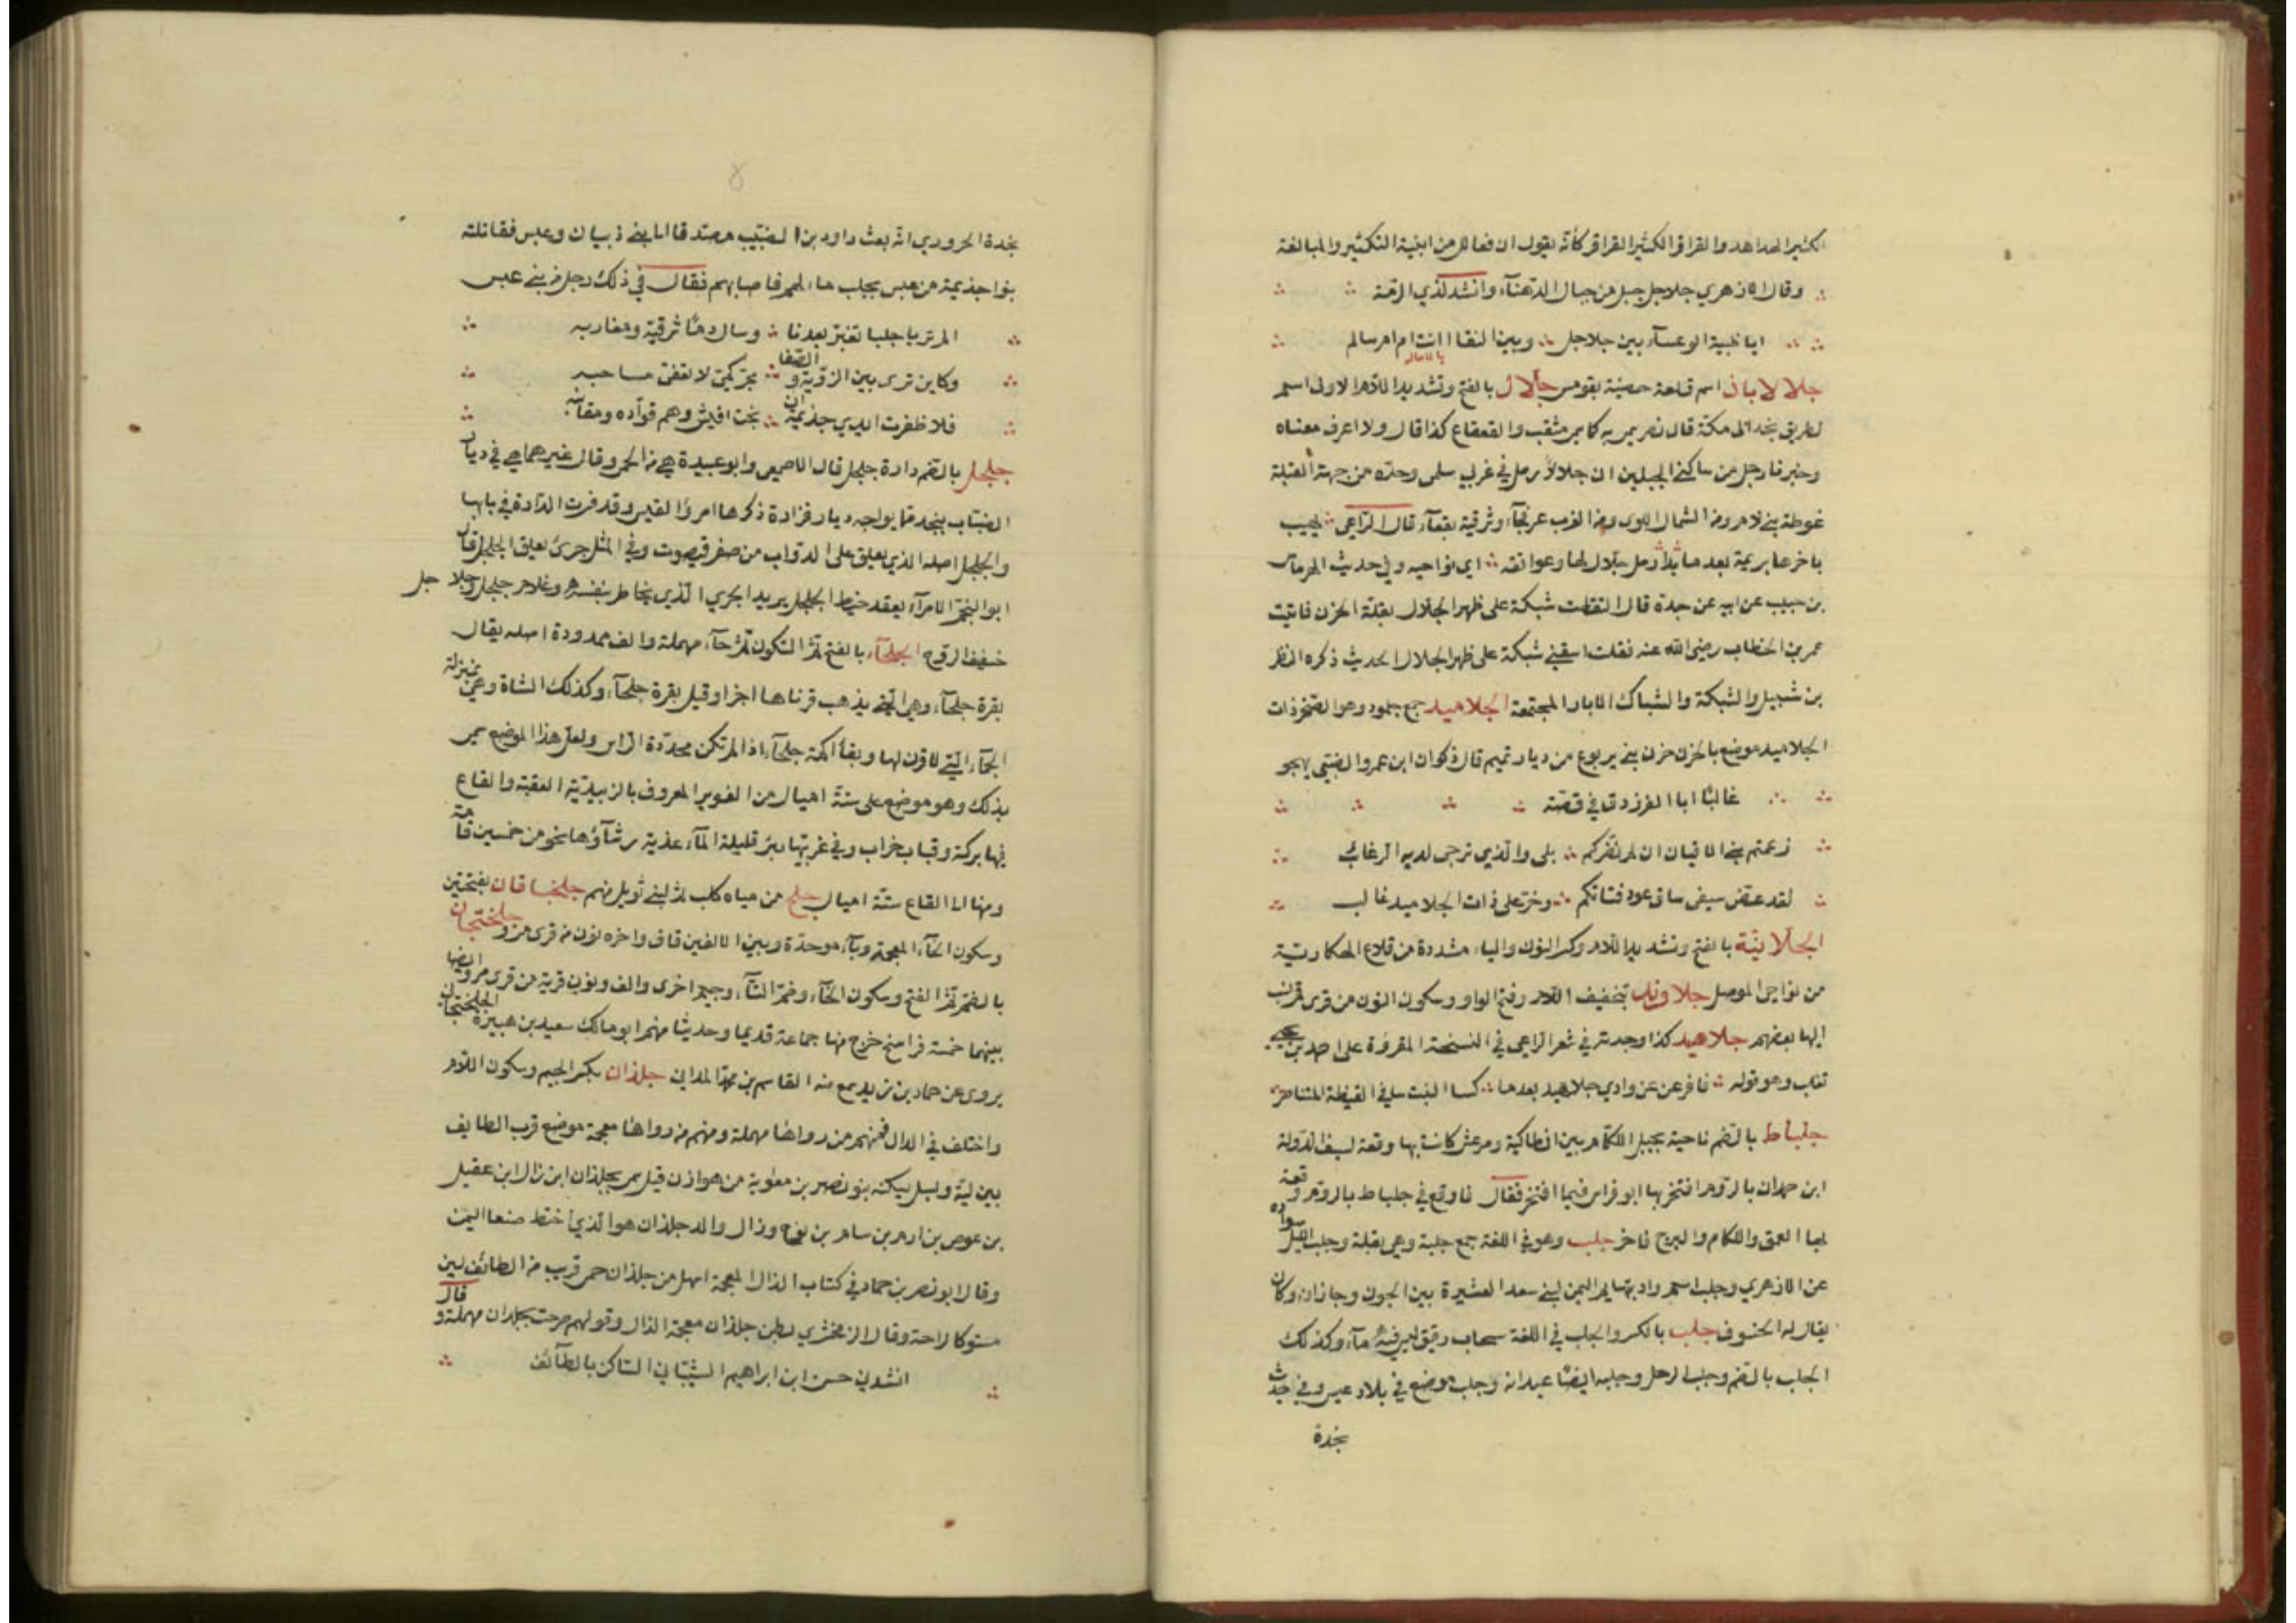 الكثير الهداهد والقراقر الكثير القراقر كأنه يقول ان فعالل من ابنية التكثير والمبالغة
وقال الازهري جلاجل جبل من جبال الدهنآء وانشد لذي الرمة
ايا ظبية الوعسآء بين جلاجل وبين النقا اانت ام ام سالم
جلالاباذ اسم قلعة حصينة بقومس جلال بالفتح وتشديد اللام الاولى اسم
لطريق نجد الى مكة قال نصر سمي به كما سمي مثقب والقعقاع كذا قال ولا اعرف معناه
وخبرنا رجل من ساكني الجبلين ان جلالا رمل في غربي سلمى وحده من جهة القبلة
غوطة بني لام ومن الشمال اللوى ومن الغرب عرنجآء وشرقيه بقعآء قال الراعي يهيب
باخرها بريمة بعد ما بدا رمل جلال لها وعواتقه اي نواحيه وفي حديث الهرماس
بن حبيب عن ابيه عن جده قال التقطت شبكة على ظهر الجلال بقلة الحزن فاتيت
عمر بن الخطاب رضي الله عنه فقلت اسقني شبكة على ظهر الجلال الحديث ذكره النظر
بن شميل والشبكة والشباك الابار المجتمعة الجلاميد جمع جلمود وهو الصخر ذات
الجلاميد موضع بالحزن حزن بني يربوع من ديار تميم قال ذكوان ابن عمرو الضبي يهجو
غالبا ابا الفرزدق في قصة
زعمتم بني الاقيان ان لم نضركم بلى والذي ترجى لديه الرغائب
لقد عض سيفي ساق عود فتاتكم وخر على ذات الجلاميد غالب
الجلانية بالفتح وتشديد اللام وكسر النون والياء مشددة من قلاع الهكارية
من نواحي الموصل جلاوند بتخفيف اللام وفتح الواو وسكون النون من قرى
اليها بعضهم جلاهيد كذا وجدته في شعر الراعي في النسخة المقروة على احمد بن يحيى
ثعلب وهو قوله فافرعن عن وادي جلاهيد بعدما كسا البيت سافي القيظة المتناصر
جلباط بالضم ناحية بجبل اللكام بين انطاكية ومرعش كانت بها وقعة لسيف الدولة
ابن حمدان بالروم افتخر بها ابو فراس فيما افتخر فقال فاوقع في جلباط بالروم وقعة
بها العمق واللكام والبرج فاخر جلب وهو في اللغة جمع جلبة وهي بقلة وجلب الليل سواده
عن الازهري وجلب اسم واد بتهايم اليمن لبني سعد العشيرة بين الجون وجازان وكان
يقال له الخسوف جلب بالكسر والجلب في اللغة سحاب رقيق ليس فيه مآء وكذلك
الجلب بالضم وجلب الرحل وجلبه ايضا عيدانه وجلب موضع في بلاد عبس وفي حديث
نجدة
نجدة الحروري انه بعث داود بن الضبيب مصدقا الى بني ذبيان وعبس فقاتلته
بنوا جذيمة من عبس بجلب ماء لهم فاصابهم فقال في ذلك رجل من بني عبس
الم تر يا جلبا تغير بعدنا وسال دما شرقيه ومغاربه
وكاين ترى بين الروية والصفا مجر كمي لا تعفى مساحبه
فلا ظفرت ايدي جذيمة ان نجت وهم قواده ومقانبه
جلجل بالضم دارة جلجل قال الاصمعي وابو عبيدة هي من الحمى وقال غيرهما هي في ديار
الضباب بنجد مما يواجه ديار فزارة ذكرها امرؤ القيس وقد فسرت الدارة في بابها
والجلجل اصله الذي يعلق على الدواب من صفر فيصوت وفي المثل جرئ يعلق الجلجل قال
ابو النجم الا امرآء يعقد خيط الجلجل يريد الجري الذي يخاطر بنفسه وغلام جلجل وجلاجل
خفيف الروح الجلحآء بالفتح ثم السكون ثم حآء مهملة والف ممدودة اصله يقال
بقرة جلحآء وهي التي يذهب قرناها اخرا وقيل بقرة جلحآء وكذلك الشاة وهي بمنزلة
الجمآء التي لا قرن لها ويقال اكمة جلحآء اذا لم تكن محددة الراس ولعل هذا الموضع سمي
بذلك وهو موضع على ستة اميال من الغوير المعروف بالزبيدية بين العقبة والقاع
فيها بركة وقباب خراب وفي غربيها بئر قليلة المآء عذبة رشآؤها نحو من خمسين قامة
ومنها الى القاع ستة اميال جلح من مياه كلب ثم لبني تويل منهم جلخباقان بفتحتين
وسكون الخآء المعجمة وبآء موحدة وبين الالفين قاف واخره نون من قرى مرو جلختجان
بالضم ثم الفتح وسكون الخآء وضم التآء وجيم اخرى والف ونون قرية من قرى مرو ايضا
بينهما خمسة فراسخ خرج منها جماعة قديما وحديثا منهم ابو مالك سعيد بن هبيرة الجلختجاني
يروى عن حماد بن زيد سمع منه القاسم بن محمد المداني جلذان بكسر الجيم وسكون اللام
واختلف في الدال فمنهم من رواها مهملة ومنهم من رواها معجمة موضع قرب الطايف
بين لية وبسل يسكنه بنو نصر بن معاوية من هوازن قيل سمي بجلذان ابن زال ابن عقيل
بن عوص بن ارم بن سام بن نوح وزال والد جلذان هو الذي اختط صنعا اليمن
وقال ابو نصر بن حماد في كتاب الذال المعجمة اسهل من جلذان حمى قريب من الطائف لين
مستو كالراحة وقال الزمخشري بطن جلذان معجمة الذال وقولهم صرحت بجلدان مهملة وقال
انشدني حسن ابن ابراهيم الشيباني الساكن بالطآئف